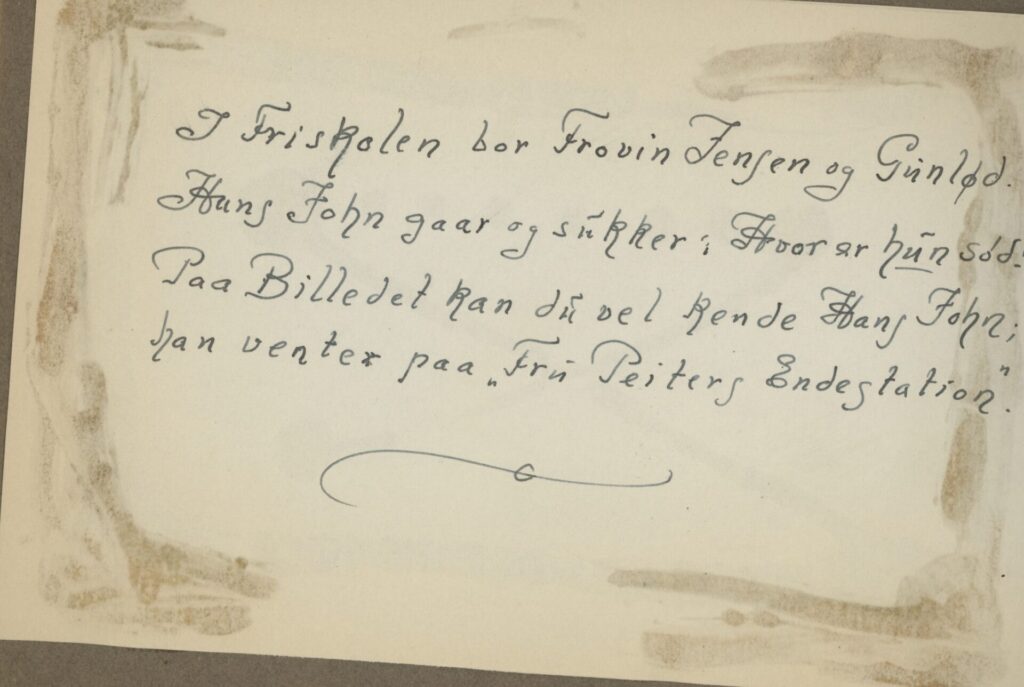 I Friskolen bor Frovin Jensen og Gunlød.
Hans John gaar og sukker: Hvor er hun sød!
Paa Billedet kan du vel kende Hans John;
han venter paa „Fru Peiters Endestation".